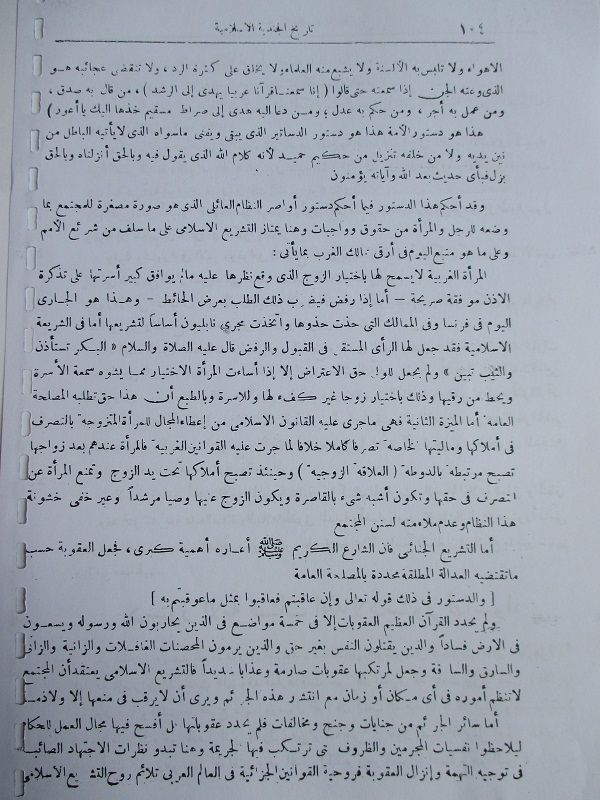 ١٠٤ تاريخ الجندية الاسلامية
الاهواء ولا تلبس به الألسنة ولا يشبع منه العلماء ولا يخلق على كثرة الرد ، ولا تنقضى عجائبه هو
الذى وعته الجن إذا سمعته حتى قالوا ( إنا سمعنا قرآنا عربيا يهدى إلى الرشد ) ، من قال به صدق ،
ومن عمل به أجر ، ومن حكم به عدل ؛ ومن دعا اليه هدى إلى صراط مستقيم خذها اليك يا أعور )
هذا هو دستور الأمة هذا هو دستور الدساتير الذى يبقى ويفنى ماسواه الذى لا يأتيه الباطل من
بين يديه ولا من خلفه تنزيل من حكيم حميد لأنه كلام الله الذى يقول فيه وبالحق أنزلناه وبالحق
نزل فبأى حديث بعد الله وآياته يؤمنون
وقد أحكم هذا الدستور فيما أحكم دستور أواصر النظام العائلى الذى هو صورة مصغرة للمجتمع بما
وضعه للرجل والمرأة من حقوق وواجبات وهنا يمتاز التشريع الاسلامى على ما سلف من شرائع الأمم
وعلى ما هو متبع اليوم فى أرقى ممالك الغرب بما يأتى :
المرأة الغربية لا يسمح لها باختيار الزوج الذى وقع نظرها عليه مالم يوافق كبير أسرتها على تذكرة
الاذن موفقة صريحة — أما إذا رفض فيضرب ذلك الطلب بعرض الحائط — وهذا هو الجارى
اليوم فى فرنسا وفى الممالك التى حذت حذوها واتخذت مجرى نابليون أساساً لتشريعها أما فى الشريعة
الاسلامية فقد جعل لها الرأى المستقل فى القبول والرفض قال عليه الصلاة والسلام « البكر تستأذن
والثيب تبين » ولم يجعل للولى حق الاعتراض إلا إذا أساءت المرأة الاختيار مما يشوه سمعة الأسرة
ويحط من رقيها وذلك باختيار زوجا غير كفء لها وللاسرة وبالطبع أن هذا حق تطلبه المصلحة
العامة أما الميزة الثانية فهى ماجرى عليه القانون الاسلامى من إعطاء المجال للمرأة المتزوجة بالتصرف
فى أملاكها وماليتها الخاصة تصرفا كاملا خلافا لما جرت عليه القوانين الغربية فالمرأة عندهم بعد زواجها
تصبح مرتبطة بالدوطة ( العلاقة الزوجية ) وحينئذ تصبح أملاكها تحت يد الزوج وتمنع المرأة عن
التصرف فى حقها وتكون أشبه شىء بالقاصرة ويكون الزوج عليها وصيا مرشداً وغير خفى خشونة
هذا النظام وعدم ملاءمته لسنن المجتمع
أما التشريع الجنائى فان الشارع الكريم ﷺ أعاره أهمية كبرى ، فجعل العقوبة حسب
ماتقتضيه العدالة المطلقة محددة بالمصلحة العامة
[ والدستور فى ذلك قوله تعالى وإن عاقبتم فعاقبوا بمثل ماعوقبتم به ]
ولم يحدد القرآن العظيم العقوبات إلا فى خمسة مواضع فى الذين يحاربون الله ورسوله ويسعون
فى الارض فساداً والذين يقتلون النفس بغير حق والذين يرمون المحصنات الغافلات والزانية والزانى
والسارق والسارقة وجعل لمرتكبها عقوبات صارمة وعذابا شديداً فالتشريع الاسلامى يعتقد أن المجتمع
لا تنتظم أموره فى أى مكان أو زمان مع انتشار هذه الجرائم ويرى أن لا يرقب فى منعها إلا ولا ذمة
أما سائر الجرائم من جنايات وجنح ومخالفات فلم يحدد عقوباتها بل أفسح فيها مجال العمل للحكام
ليلاحظوا نفسيات المجرمين والظروف التى ترتكب فيها الجريمة وهنا تبدو نظرات الاجتهاد الصائب
فى توجيه التهمة وإنزال العقوبة فروحية القوانين الجزائية فى العالم العربى تلائم روح التشريع الاسلامى